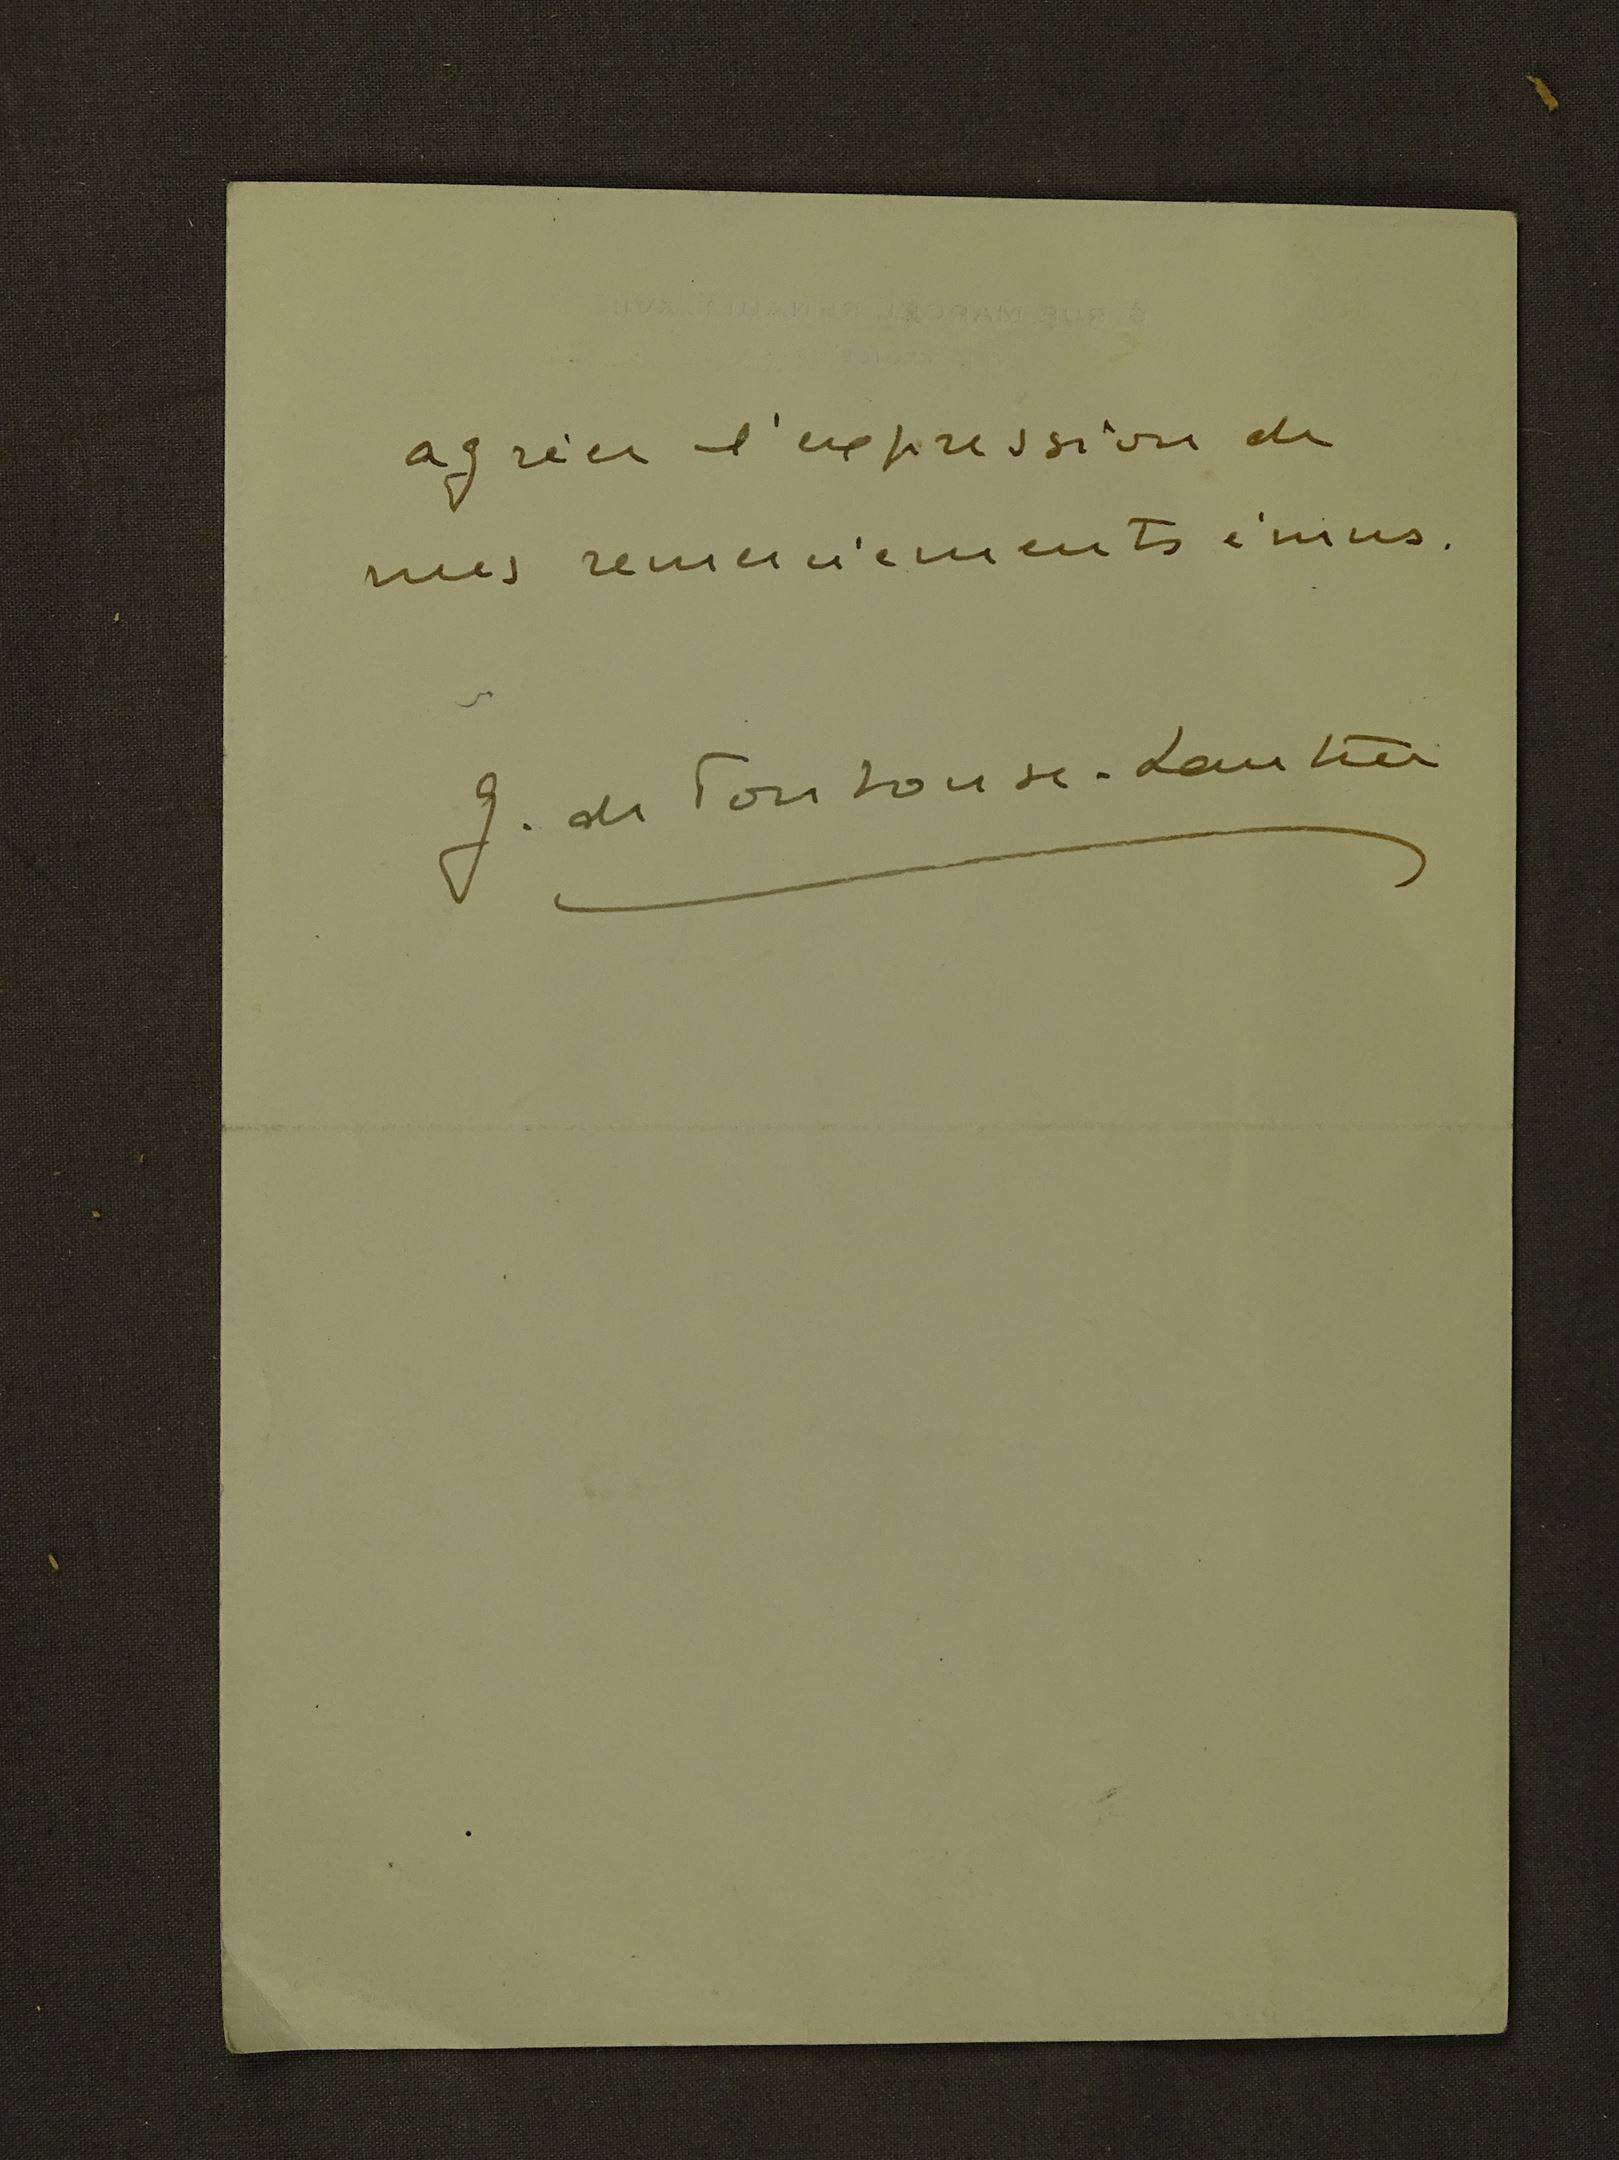 agréer l'expression de
mes remerciements émus.
G. de Toulouse-Lautrec